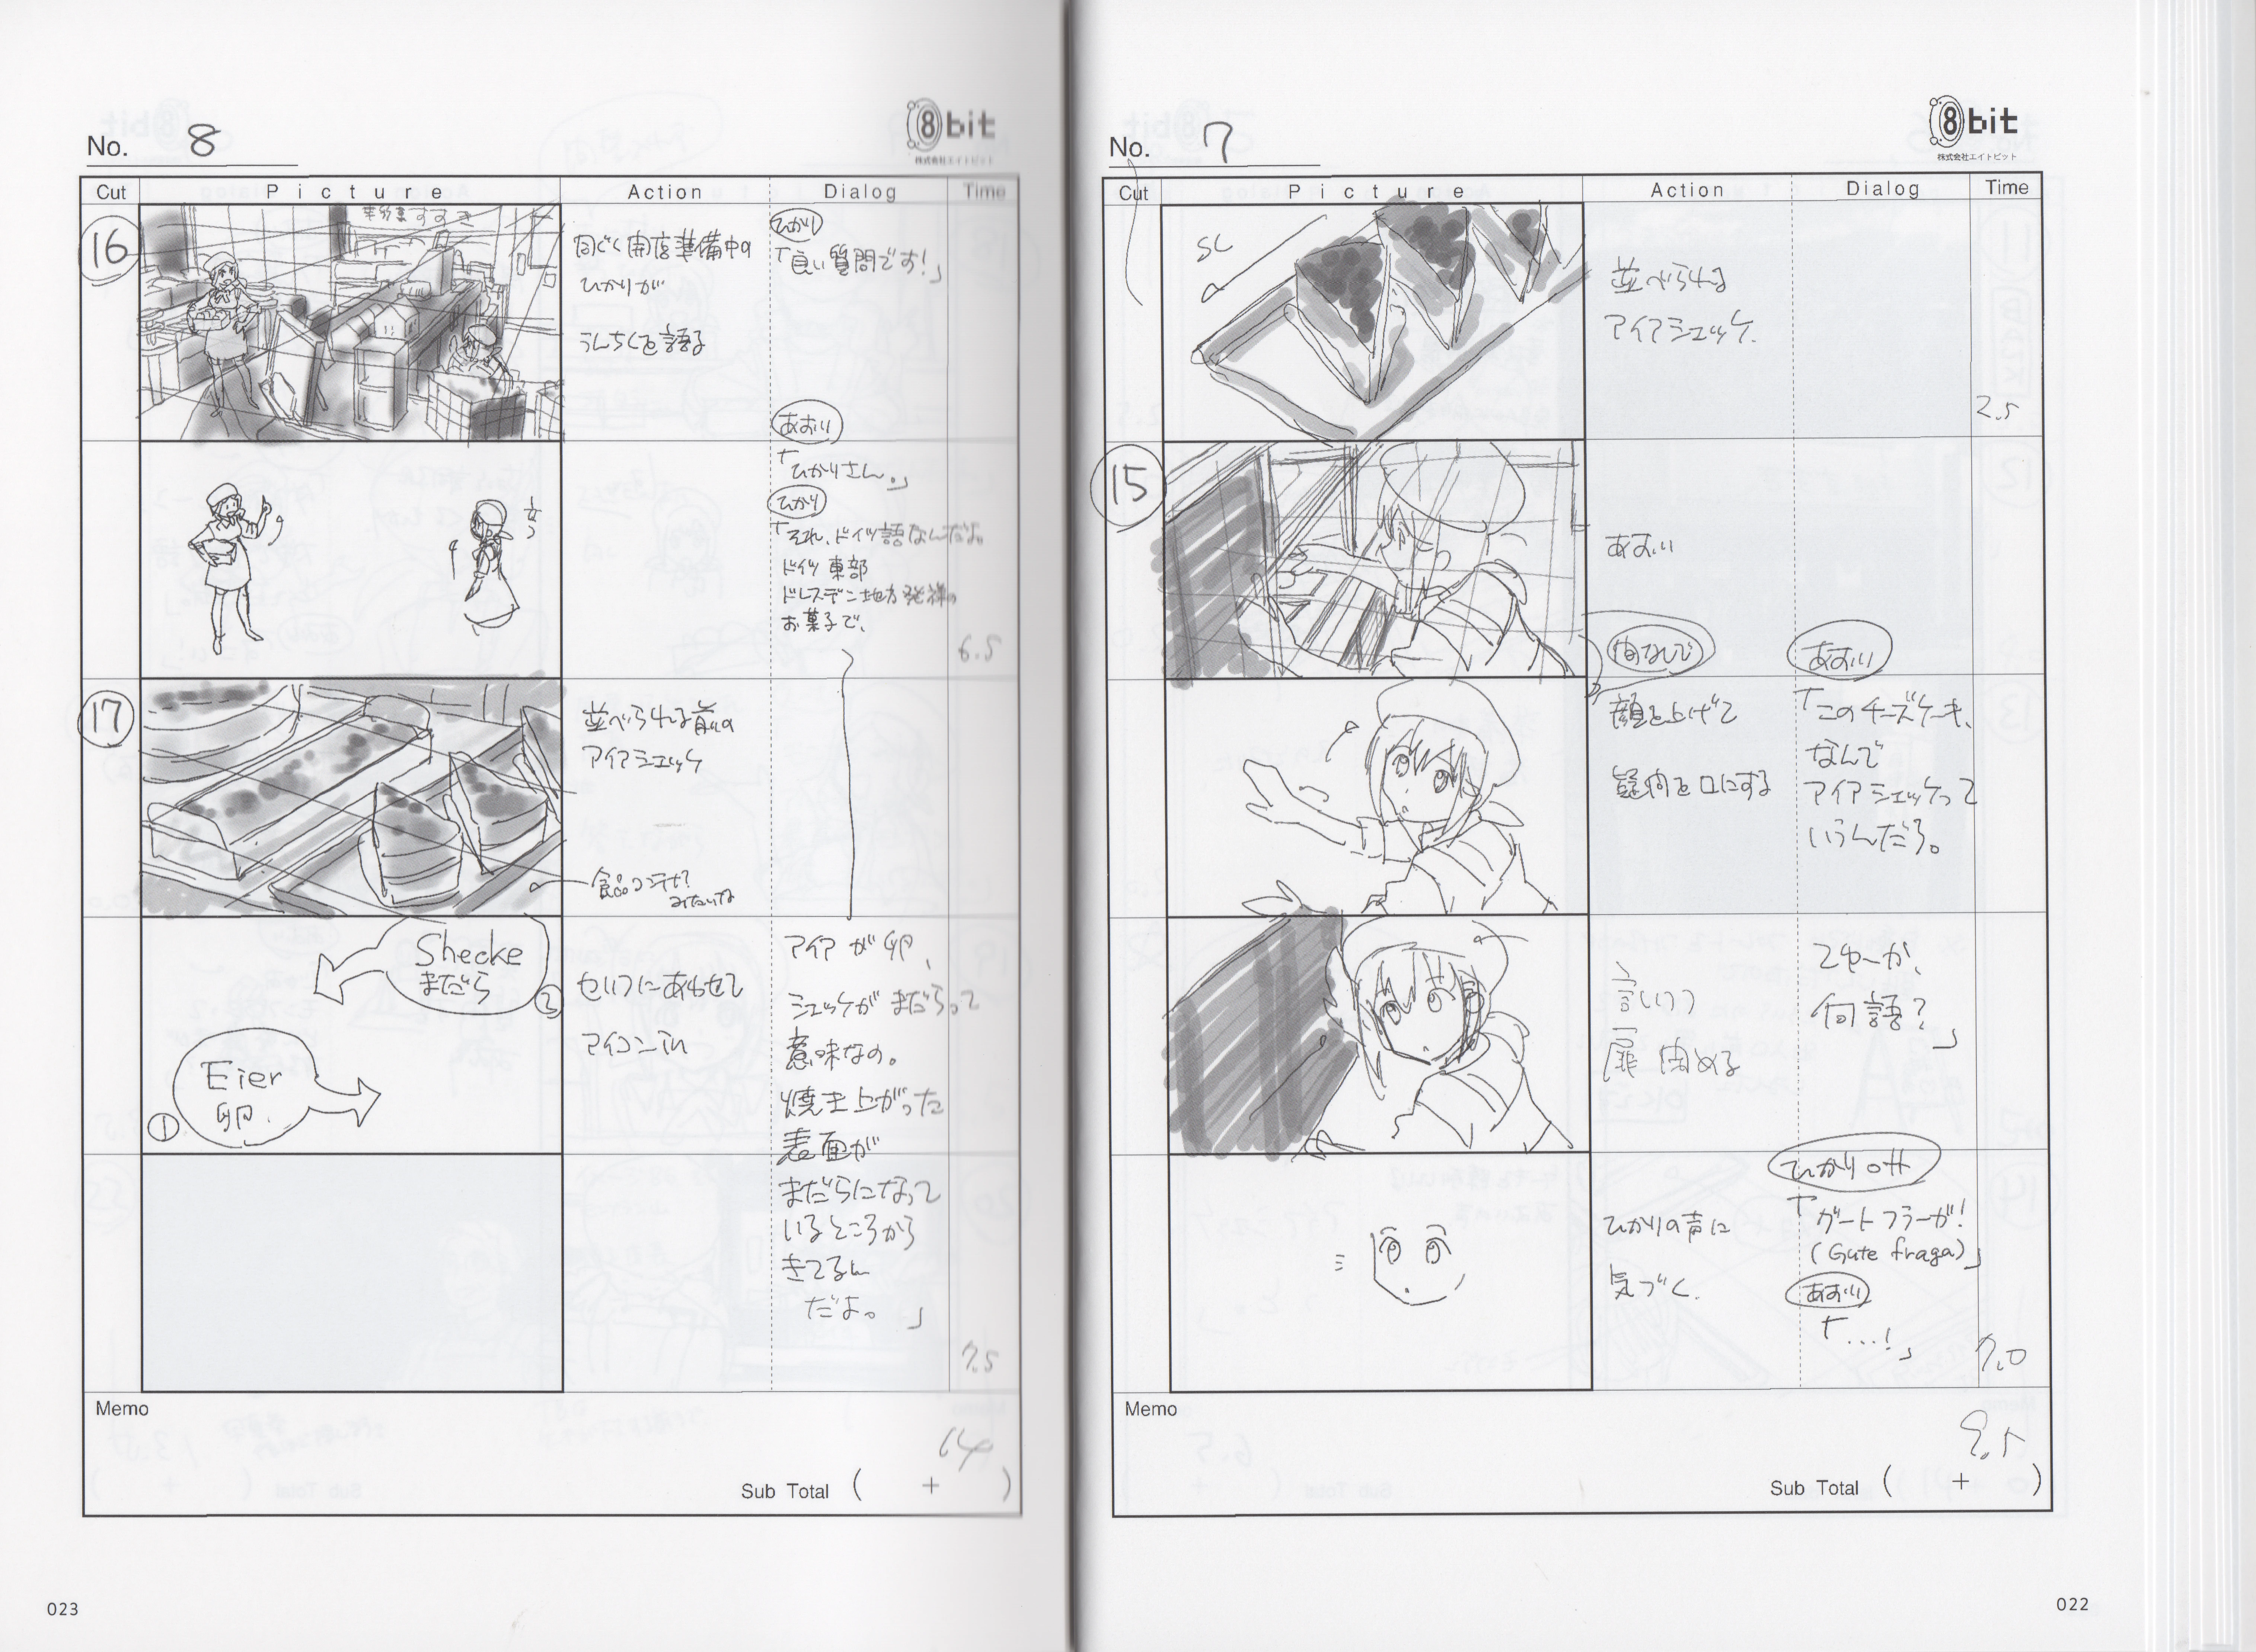 No. 7
8bit
株式会社エイトビット
Cut Picture Action Dialog Time
SL
並べられる
アイアシェッケ.
2.5
15
あおい
間なしで
顔を上げて
疑問を口にする
あおい
「このチーズケーキ、
なんで
アイアシェッケって
いうんだろ。
言いつつ
扉閉める
てゆーか、
何語?」
ひかりの声に
気づく.
ひかりoff
「グートフラーガ!
(Gute fraga)」
あおい
「...!」
7.0
Memo
9.5
Sub Total ( + )
022
No. 8
8bit
株式会社エイトビット
Cut Picture Action Dialog Time
16
同じく開店準備中の
ひかりが
うんちくを語る
ひかり
「良い質問です!」
あおい
「ひかりさん。」
ひかり
「それ、ドイツ語なんだよ。
ドイツ東部
ドレスデン地方発祥の
お菓子で、
6.5
17
並べられる前の
アイアシェッケ
食品コンテナ?
みたいな
Shecke
まだら
2
Eier
卵.
1
セリフにあわせて
アイコンin
アイアが卵、
シェッケがまだらって
意味なの。
焼き上がった
表面が
まだらになって
いるところから
きてるん
だよ。」
7.5
Memo
14
Sub Total ( + )
023